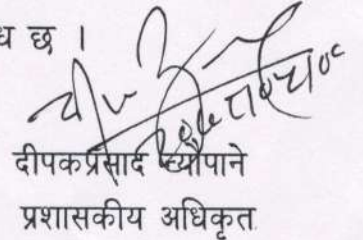 ध छ ।
दीपकप्रसाद न्यौपाने
प्रशासकीय अधिकृत